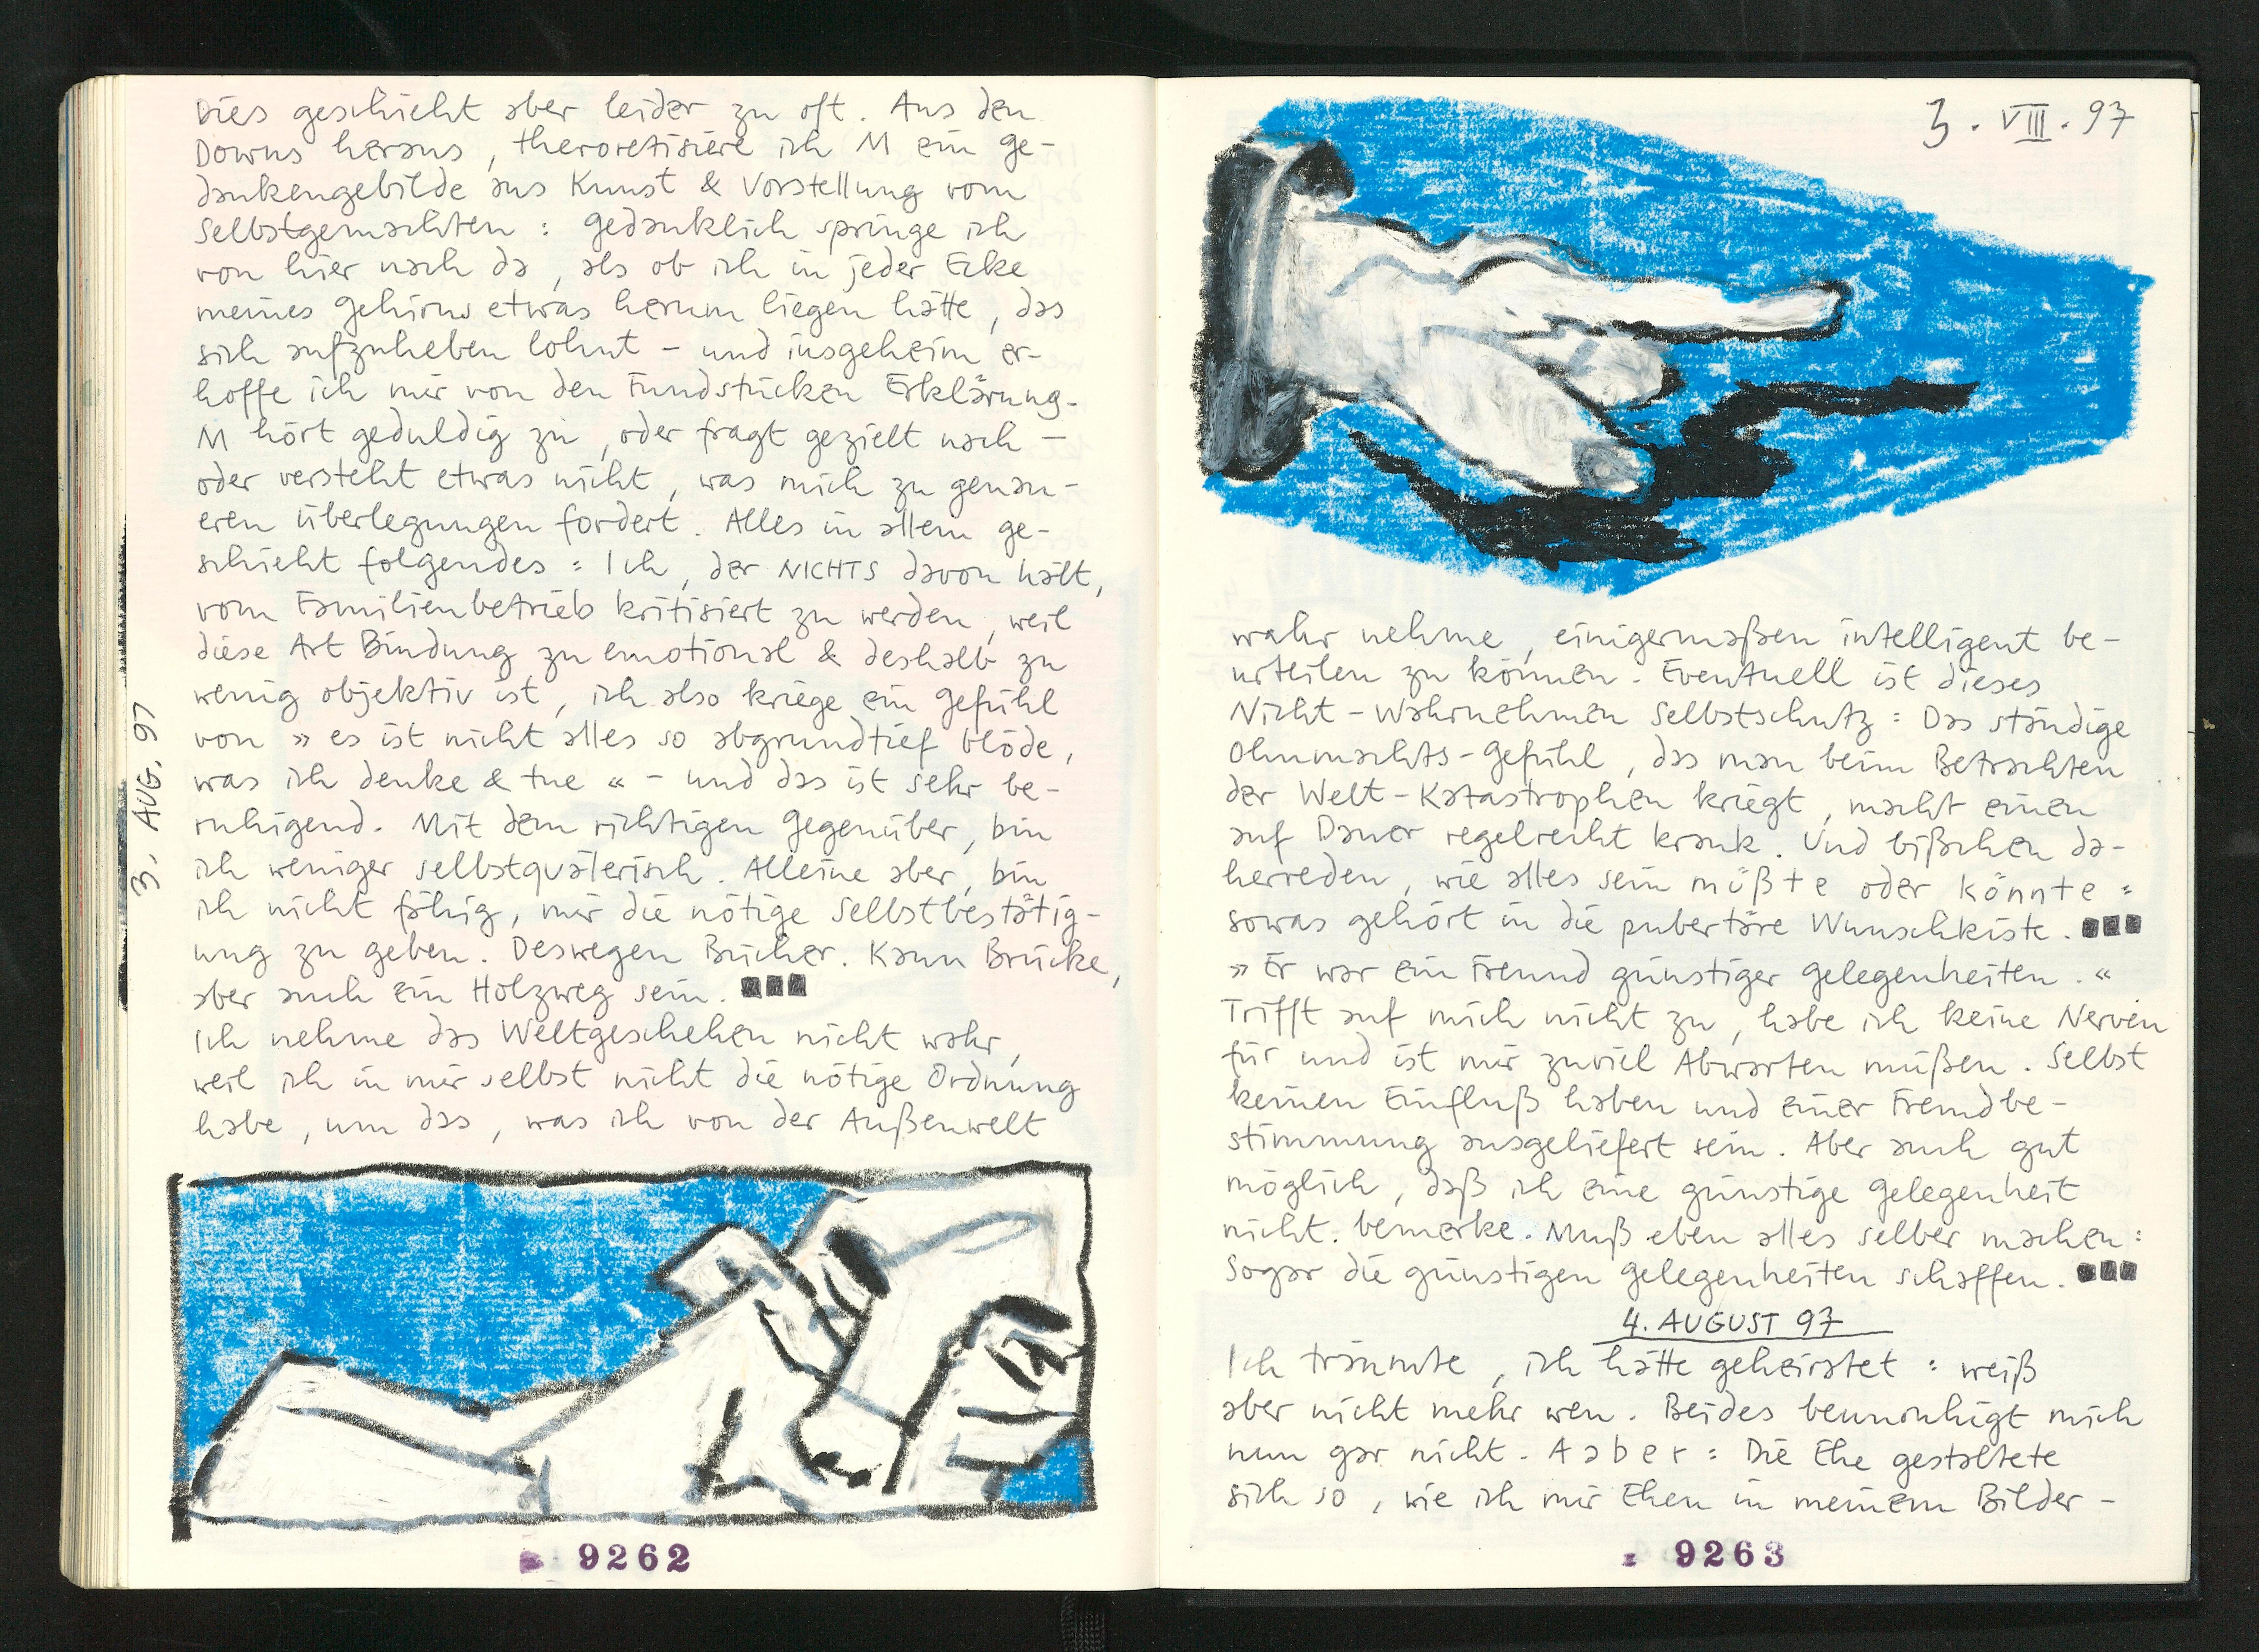 Dies geschieht aber leider zu oft. Aus den
Downs heraus, theroretisiere ich M ein Ge-
dankengebilde aus Kunst & Vorstellung vom
Selbstgemachten : Gedanklich springe ich
von hier nach da, als ob ich in jeder Ecke
meines Gehirns etwas herum liegen hätte, das
sich aufzuheben lohnt - und insgeheim er-
hoffe ich mir von den Fundstücken Erklärung.
M hört geduldig zu, oder fragt gezielt nach -
oder versteht etwas nicht, was mich zu genau-
eren Überlegungen fordert. Alles in allem ge-
schieht folgendes : Ich, der NICHTS davon hält,
vom Familienbetrieb kritisiert zu werden, weil
diese Art Bindung zu emotional & deshalb zu
wenig objektiv ist, ich also kriege ein Gefühl
von » es ist nicht alles so abgrundtief blöde,
was ich denke & tue « - und das ist sehr be-
ruhigend. Mit dem richtigen Gegenüber, bin
ich weniger selbstquälerisch. Alleine aber, bin
ich nicht fähig, mir die nötige Selbstbestätig-
ung zu geben. Deswegen Bücher. Kann Brücke,
aber auch ein Holzweg sein.
Ich nehme das Weltgeschehen nicht wahr,
weil ich in mir selbst nicht die nötige Ordnung
habe, um das, was ich von der Außenwelt
3. AUG. 97
9262
3. VIII. 97
wahr nehme, einigermaßen intelligent be-
urteilen zu können. Eventuell ist dieses
Nicht-Wahrnehmen Selbstschutz : Das ständige
Ohnmachts-Gefühl, das man beim Betrachten
der Welt-Katastrophen kriegt, macht einen
auf Dauer regelrecht krank. Und bißchen da-
herreden, wie alles sein müßte oder könnte :
sowas gehört in die pubertäre Wunschkiste.
» Er war ein Freund günstiger Gelegenheiten. «
Trifft auf mich nicht zu, habe ich keine Nerven
für und ist mir zuviel Abwarten müßen. Selbst
keinen Einfluß haben und einer Fremdbe-
stimmung ausgeliefert sein. Aber auch gut
möglich, daß ich eine günstige Gelegenheit
nicht. bemerke. Muß eben alles selber machen :
Sogar die günstigen Gelegenheiten schaffen.
4. AUGUST 97
Ich träumte, ich hätte geheiratet : weiß
aber nicht mehr wen. Beides beunruhigt mich
nun gar nicht. Aaber : Die Ehe gestaltete
sich so, wie ich mir Ehen in meinem Bilder-
9263